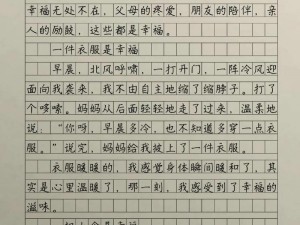 幸福无处不在，父母的疼爱，朋友的陪伴，亲
人的鼓励，这些都是幸福。
一件衣服是幸福
早晨，北风呼啸，一打开门，一阵冷风迎
面向我袭来，我不由自主地缩了缩脖子。打了
个哆嗦。妈妈从后面轻轻地走了过来，温柔地
说，“你呀，早晨多冷，也不知道多穿一点衣
服。”说完，妈妈给我披上了一件衣服。
衣服暖暖的，我感觉身体瞬间暖和了，其
实是心里温暖了，那一刻，我感受到了幸福的
滋味。